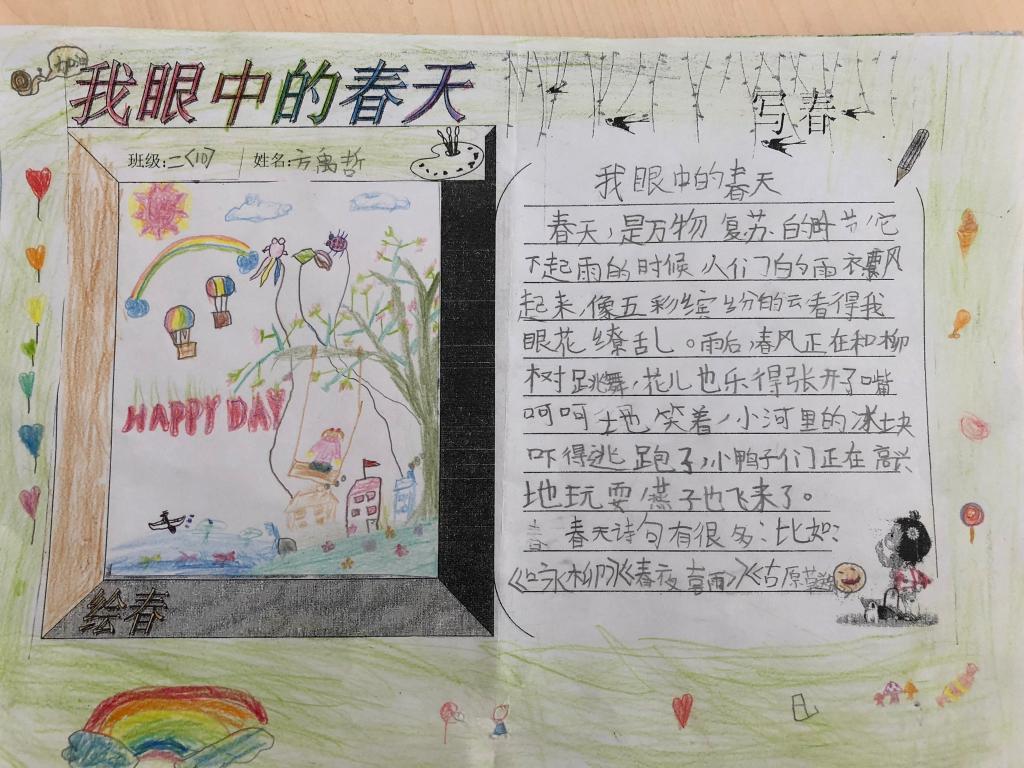 加油
我眼中的春天
班级:二(10) 姓名:方禹哲
HAPPY DAY
绘春
写春
我眼中的春天
春天,是万物复苏的时节,它
下起雨的时候人们的雨衣飘
起来,像五彩缤纷的云看得我
眼花缭乱。雨后,春风正在和柳
树跳舞,花儿也乐得张开了嘴
呵呵地笑着,小河里的冰块
吓得逃跑了,小鸭子们正在高兴
地玩耍,燕子也飞来了。
春天诗句有很多:比如:
《咏柳》《春夜喜雨》《古原草